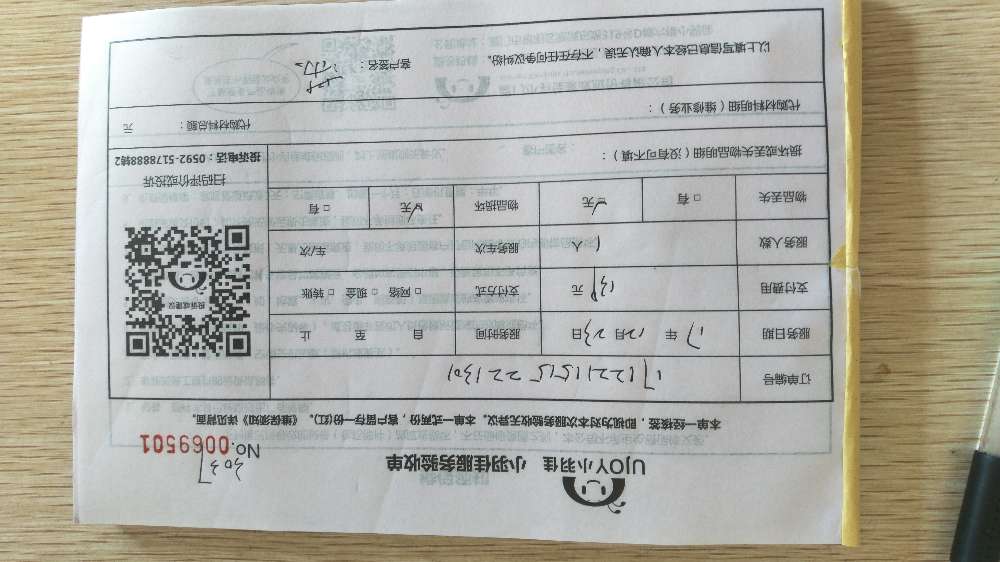 UJOY小羽佳 小羽佳服务验收单
No. 0069501
3037
本单一经核签，即视为对本次服务验收无异议。本单一式两份，客户留存一份(红)。《维保须知》详见背面。
订单编号 1712211515221301
服务日期 17年 12月 23日 服务时间 自 至 止
支付费用 元 支付方式 □ 网络 □ 现金 □ 转账
服务人数 1 人 服务车次 车/次
物品丢失 □ 有 □ 无 物品损坏 □ 无 □ 有
投诉或建议
扫码评价或投诉
投诉电话：0592-5178888转2
损坏或丢失物品明细（没有可不填）：
代购材料明细（维修业务）：
代购材料总额： 元
以上填写信息已经本人确认无误，不存在任何争议纠纷。 客户签名：